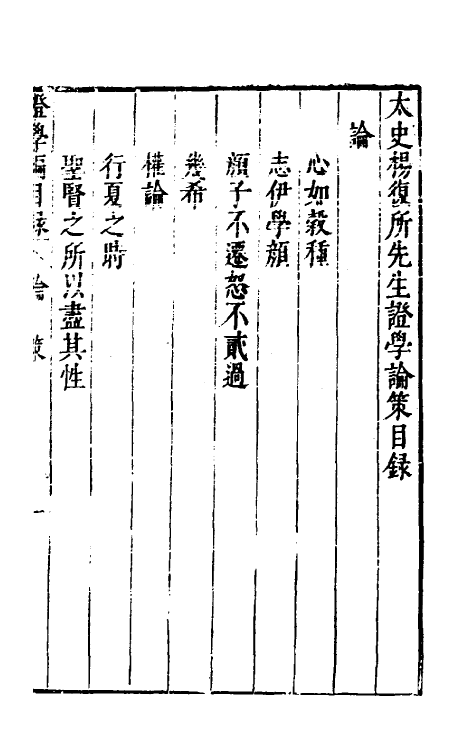 太史楊復所先生證學論策目録
論
心如穀種
志伊學顔
顔子不遷怒不貳過
幾希
權論
行夏之時
聖賢之所以盡其性
證學編目録 論 策 一